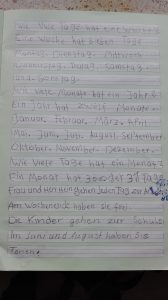 Wie viele Tage hat eine Woche?
Eine Woche hat sieben Tage
Montag. Dinstag. Mittwoch.
Donnerstag. Freitag. Samstag
und. Sonntag.
Wie viele Monate hat ein Jahr?
Ein Jahr hat zwölf Monate.
Januar. Februar. März. April
Mai. Juni. Juli. August. September
Oktober. November. Dezember.
Wie viele Tage hat ein Monat?
Ein Monat hat 30 oder 31 Tage
Frau und Herr gehen Jeden Tag zur
Am Wochenende haben sie frei.
Die Kinder gehen zur Schule
Im Juni und August haben sie
Ferien.